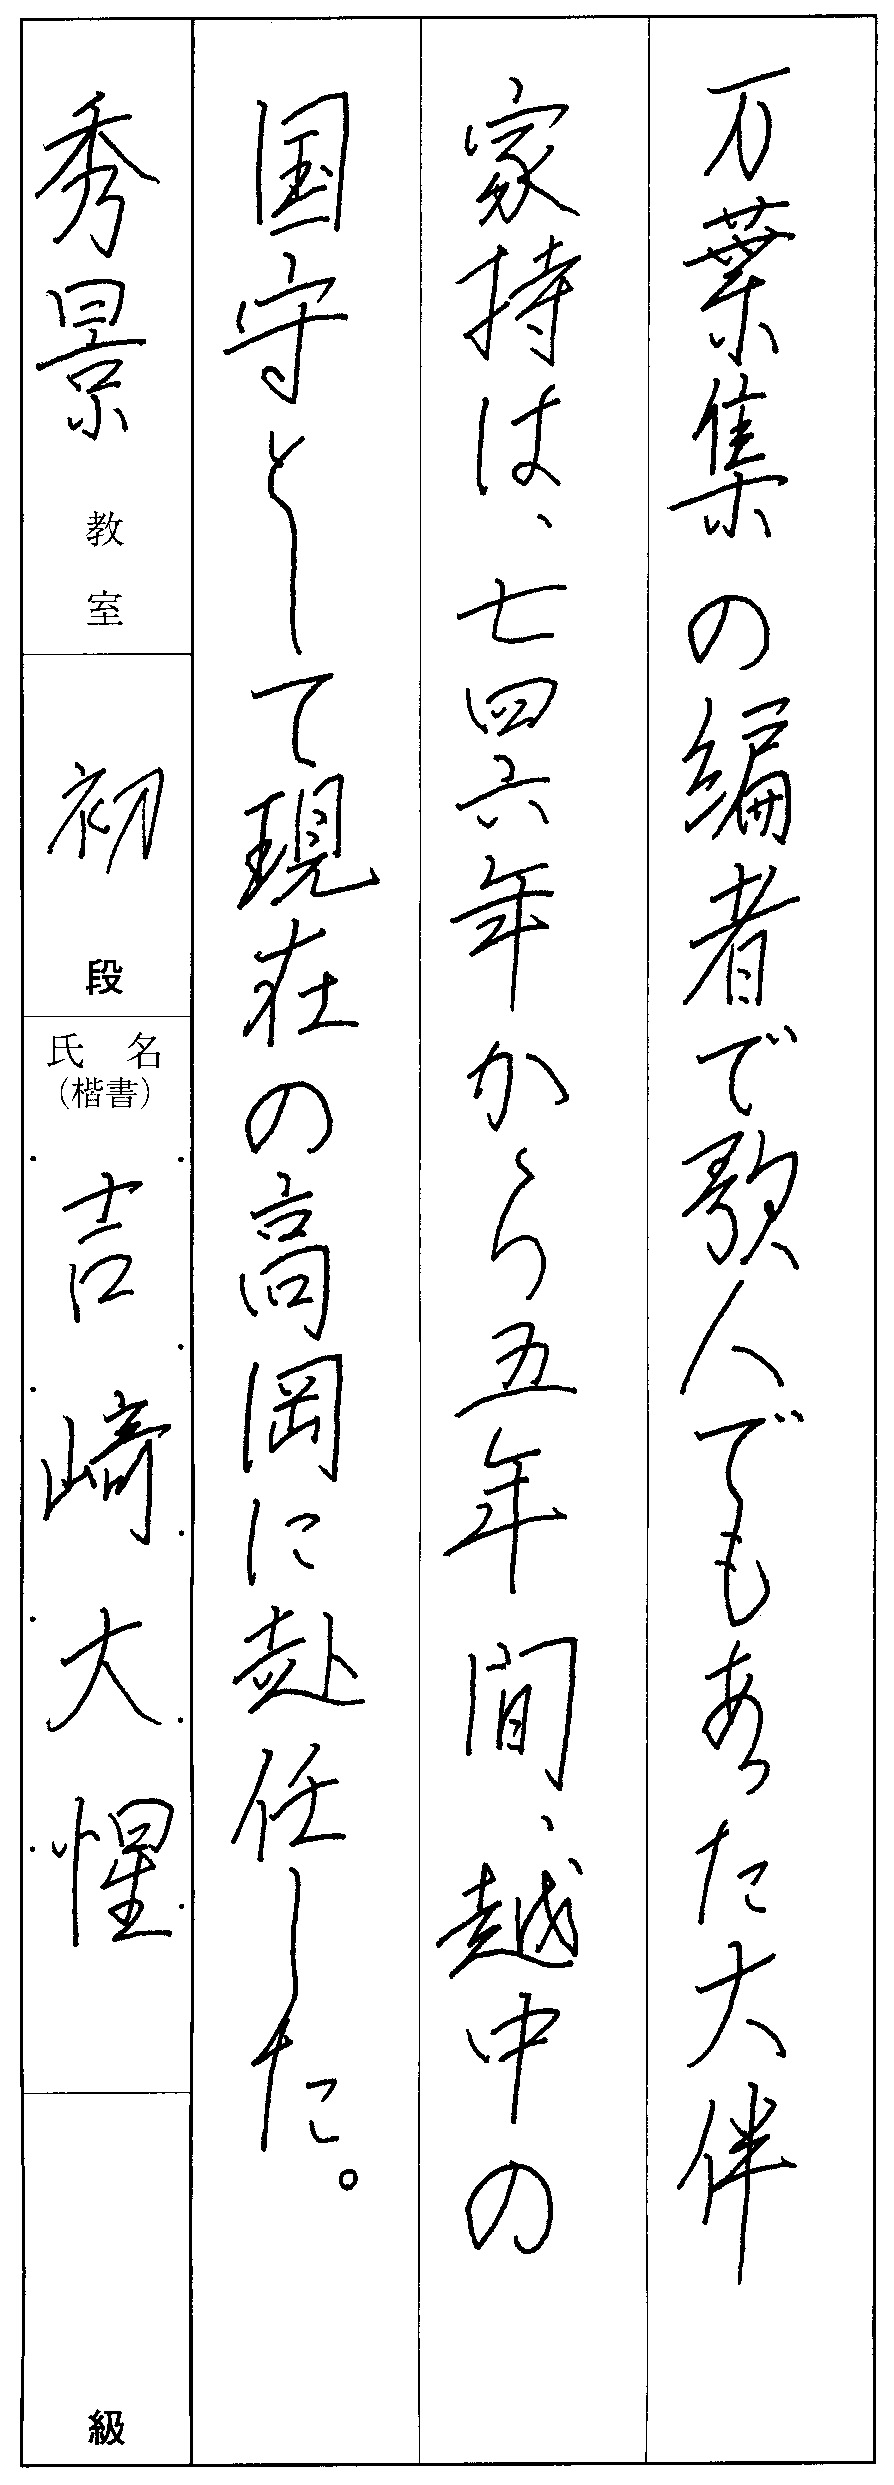 万葉集の編者で歌人でもあった大伴
家持は、七四六年から五年間、越中の
国守として現在の高岡に赴任した。
秀景教室
初段
氏名
（楷書）
吉﨑大惺
級